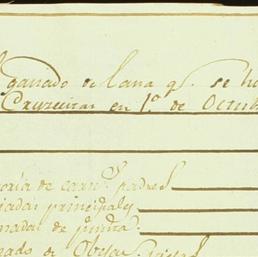 ganado de lana q.e se ha
Cruzeiras en 1.o de Octub
oria de carn.s padres
iadas principales
nadas de punta
nado de Obejas viejas